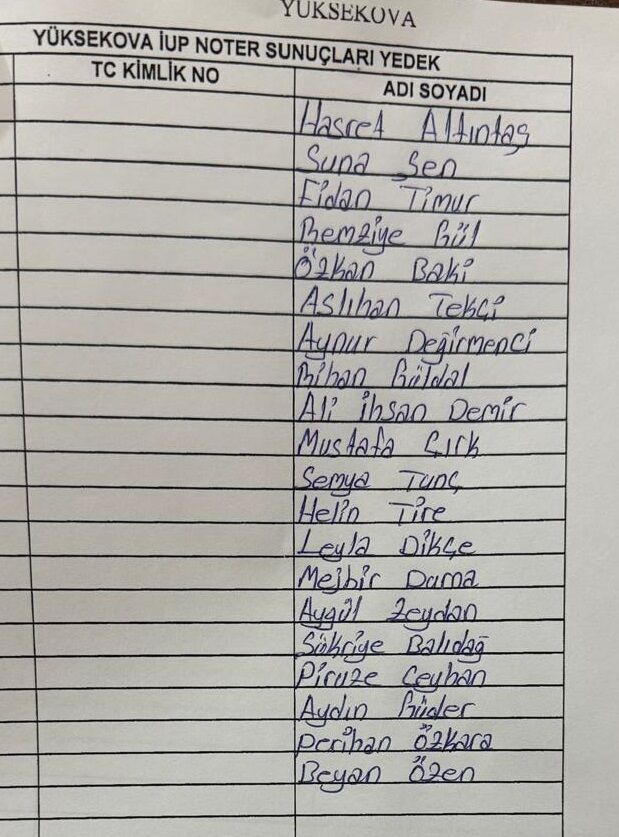 YÜKSEKOVA
YÜKSEKOVA İUP NOTER SUNUÇLARI YEDEK
TC KİMLİK NO ADI SOYADI
Hasret Altıntaş
Suna Şen
Fidan Timur
Remziye Gül
Özkan Baki
Aslıhan Tekçi
Aynur Değirmenci
Güldal
Ali ihsan Demir
Mustafa Çırk
Semya Tunç
Helin Tire
Leyla Dikçe
Mejbir Dama
Aygül Zeydan
Şükriye Balıdağ
Piruze Ceyhan
Aydın Güder
Perihan Özkara
Beyan Özen